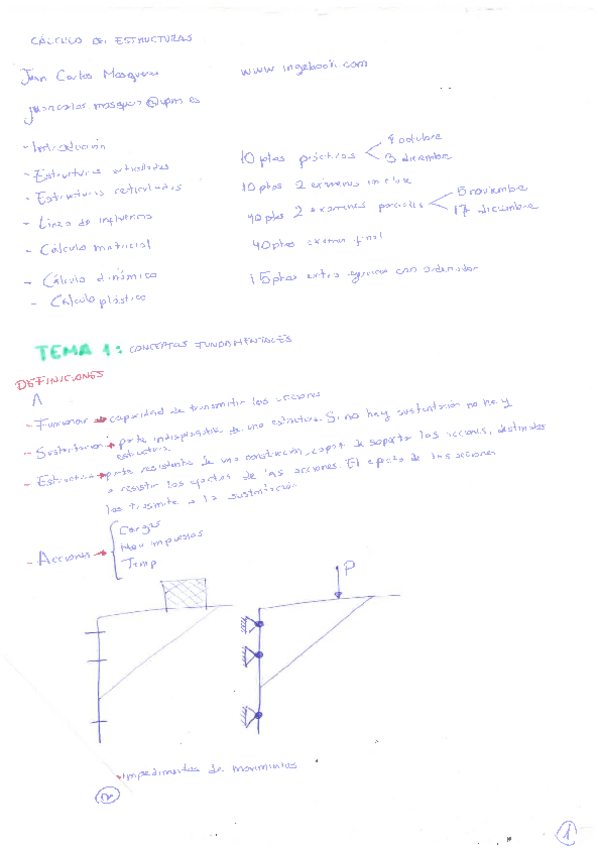 CÁLCULO DE ESTRUCTURAS
Juan Carlos Mosquera
www ingebook.com
juancarlos.mosquera@upm.es
- Introducción
- Estructuras articuladas
- Estructuras reticuladas
- Línea de influencia
- Cálculo matricial
- Cálculo dinámico
- Cálculo plástico
10 ptos prácticas
9 octubre
3 diciembre
10 ptos 2 exámenes in
40 ptos 2 exámenes parciales
5 noviembre
17 diciembre
40 ptos examen final
15 ptos extra ejercicio con ordenador
TEMA 1: CONCEPTOS FUNDAMENTALES
DEFINICIONES
- Funcionar capacidad de transmitir las acciones
- Sustentación parte indispensable de una estructura. Si no hay sustentación no hay
estructura.
- Estructura parte resistente de una construcción, capaz de soportar las acciones, destinada
a resistir los efectos de las acciones. El efecto de las acciones
las trasmite a la sustentación
- Acciones
Cargas
Mov impuestos
Temp
P
impedimentos de movimientos
2
1